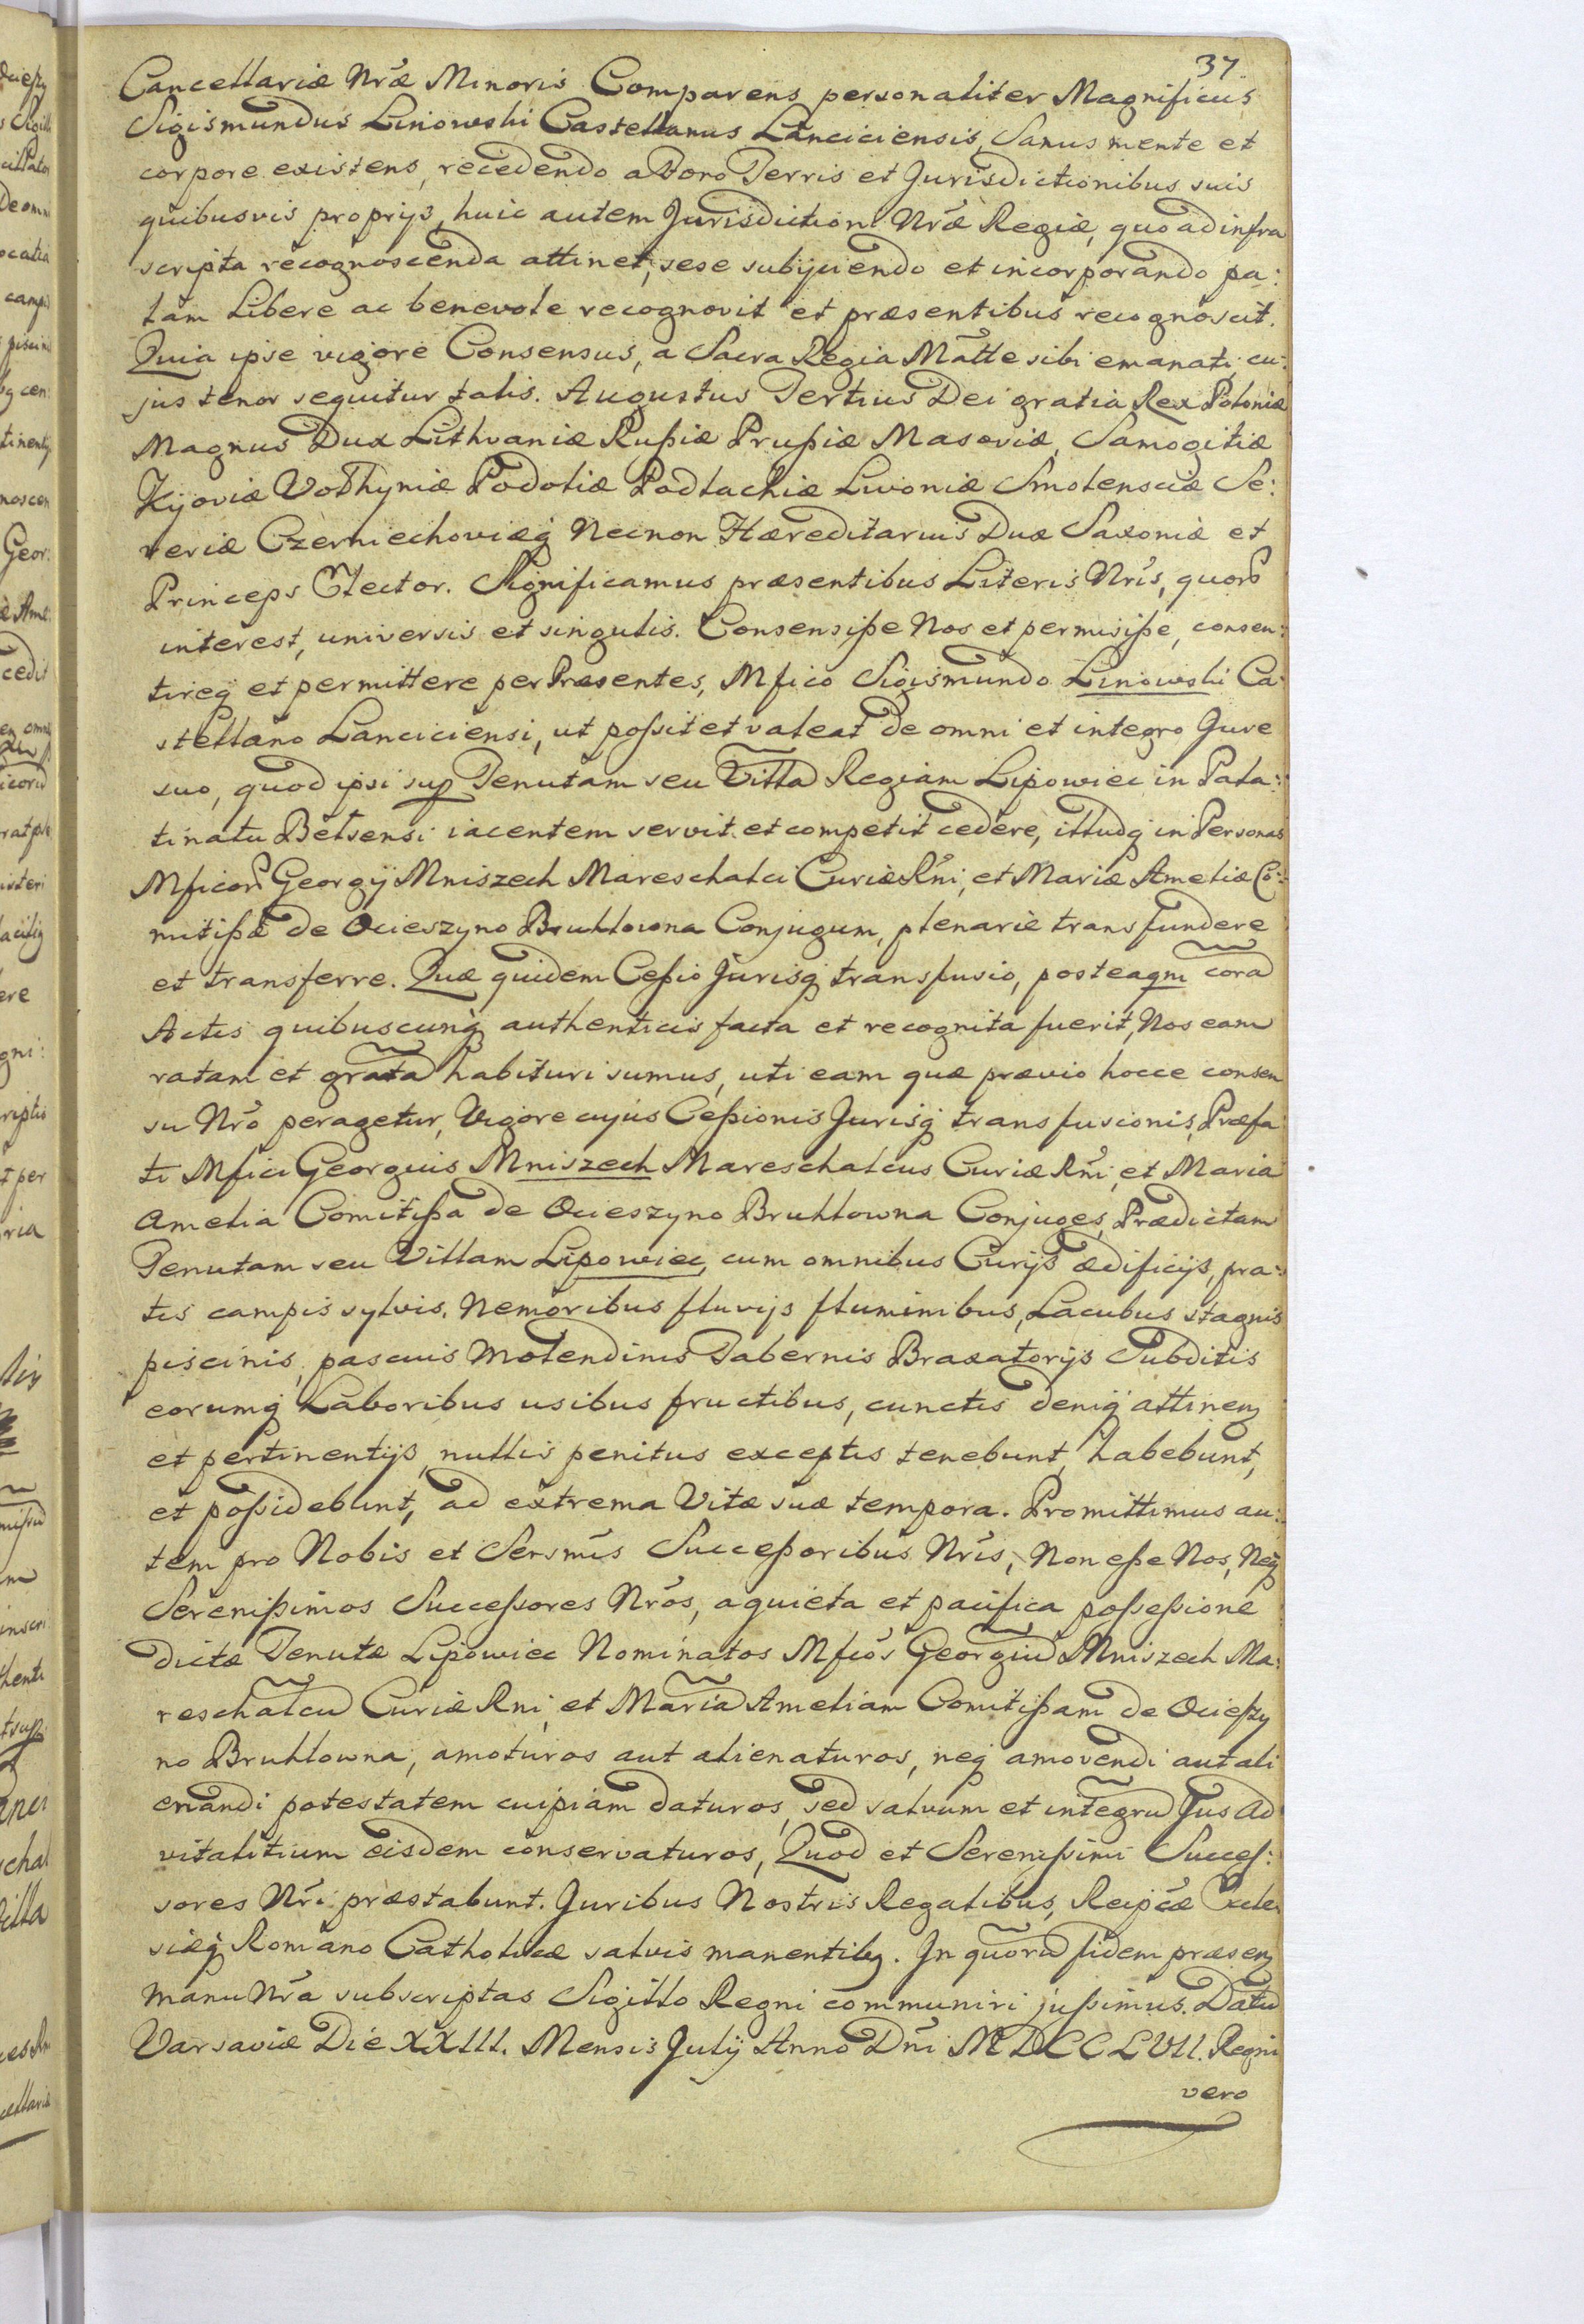 37.
Cancellariæ Nrǽ Minoris Comparens personaliter Magnificus
Sigismundus Linowski Castellanus Lanciciensis, Sanus mente et
corpore existens, recedendo a Foro Terris et Jurisdictionibus suis
quibusvis proprijs, huic autem Jurisdictioni Nrǽ Regiæ, quo ad infra
scripta recognoscenda attinet, sese subijciendo et incorporando pa:
lam Libere ac benevole recognovit et præsentibus recognoscit.
Quia ipse vigore Consensus, a Sacra Regia Matte sibi emanati, cu:
jus tenor sequitur talis. Augustus Tertius Dei gratia Rex Poloniæ
Magnus Dux Lithvaniæ Rußiæ Prußiæ Masoviæ, Samogitiæ
Kijoviæ Volhyniæ Podoliæ Podlachiæ Livoniæ Smolensciæ Se:
veriæ Czerniechoviæq̃ Necnon Hæreditarius Dux Saxoniæ et
Princeps Elector. Significamus præsentibus Literis Nrís, quorũ
interest, universis et singulis. Consensiße Nos et permisiße, consen:
tireq̃ et permittere per Præsentes, Mfico Sigismundo Linowski Ca:
stellano Lanciciensi, ut poßit et valeat de omni et integro Jure
suo, quod ipsi sup Tenutam seu Villã Regiam Lipowiec in Pala:
tinatu Belsensi iacentem servit et competit cedere, illudq̃ in Personas
Mficorũ Georgij Mniszech Mareschalci Curiæ Rńi, et Mariæ Ameliæ Co:
mitißæ de Ocieszyno Bruhlowna Conjugum, plenarie transfundere
et transferre. Quæ quidem Ceßio Jurisq̃ transfusio, posteaqm corã
Actis quibuscunq̃ authenticis facta et recognita fuerit, Nos eam
ratam et gratã habituri sumus, uti eam quæ prævio hocce consen
su Nró peragetur, Vigore cujus Ceßionis Jurisq̃ transfusionis, Præfa
ti Mfici Georgius Mniszech Mareschalcus Curiæ Rńi, et Maria
Amelia Comitißa de Ocieszyno Bruhlowna Conjuges, Prædictam
Tenutam seu Villam Lipowiec, cum omnibus Curijs ædificijs, pra:
tis campis sylvis, Nemoribus fluvijs fluminibus, Lacubus stagnis
piscinis, pascuis Molendinis Tabernis Braxatorijs Subditis
eorumq̃ Laboribus usibus fructibus, cunctis deniq̃ attinen͂
et pertinentijs, nullis penitus exceptis tenebunt, habebunt,
et poßidebunt, ad extrema Vitæ suæ tempora. Promittimus au:
tem pro Nobis et Sersmis Succeßoribus Nrís, Non eße Nos, Neq̃
Serenißimos Succeßores Nrós, a quieta et pacifica poßeßione
dictæ Tenutæ Lipowiec Nominatos Mficós Georgiũ Mniszech Ma:
reschalcũ Curiæ Rni, et Mariã Ameliam Comitißam de Ocieszy
no Bruhlowna, amoturos aut alienaturos, neq̃ amovendi aut ali
enandi potestatem cuipiam daturos, sed salvum et integrũ Jus Ad
vitalitium eisdem conservaturos, Quod et Serenißimi Succes:
sores Nrí præstabunt. Juribus Nostris Regalibus, Reipcæ Eccle
siæq̃ Romano Catholicæ salvis manentibq. In quorũ fidem præsen͂
manu Nrá subscriptas Sigillo Regni communiri jußimus. Datũ
Varsaviæ Die XXIII. Mensis Julij Anno Dńi MDCCLVII. Regni
vero